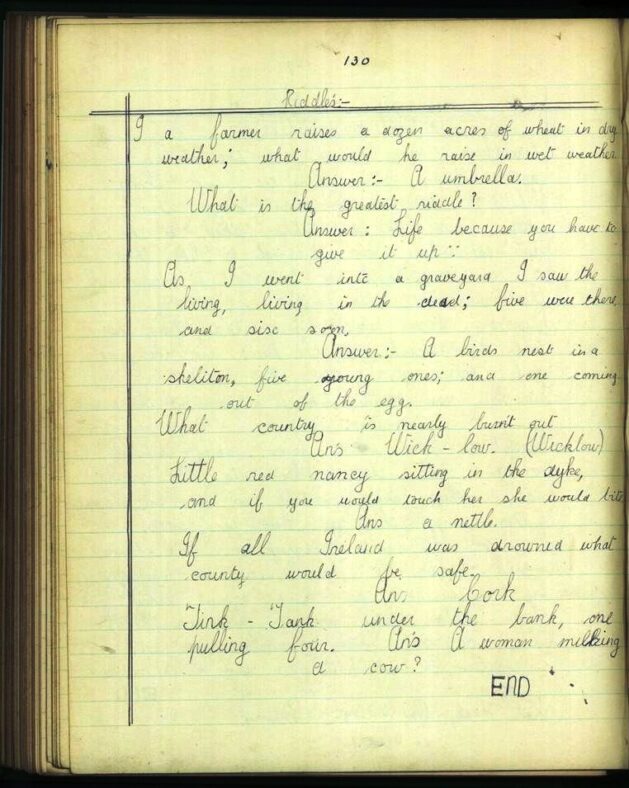 130
Riddles:-
I a farmer raises a dozen acres of wheat in dry
weather; what would he raise in wet weather
Answer:- A umbrella.
What is the greatest riddle?
Answer: Life because you have to
give it up.
As I went into a graveyard I saw the
living, living in the dead; five were there
and sisc soon,
Answer:- A birds nest in a
sheliton, five young ones; and one coming
out of the egg.
What country is nearly burn't out
Ans Wick - low. (Wicklow)
Little red nancy sitting in the dyke,
and if you would touch her she would bite
Ans a nettle.
If all Ireland was drowned what
county would be safe.
Ans Cork
Tink - Tank under the bank, one
pulling four. Ans A woman milking
a cow?
END